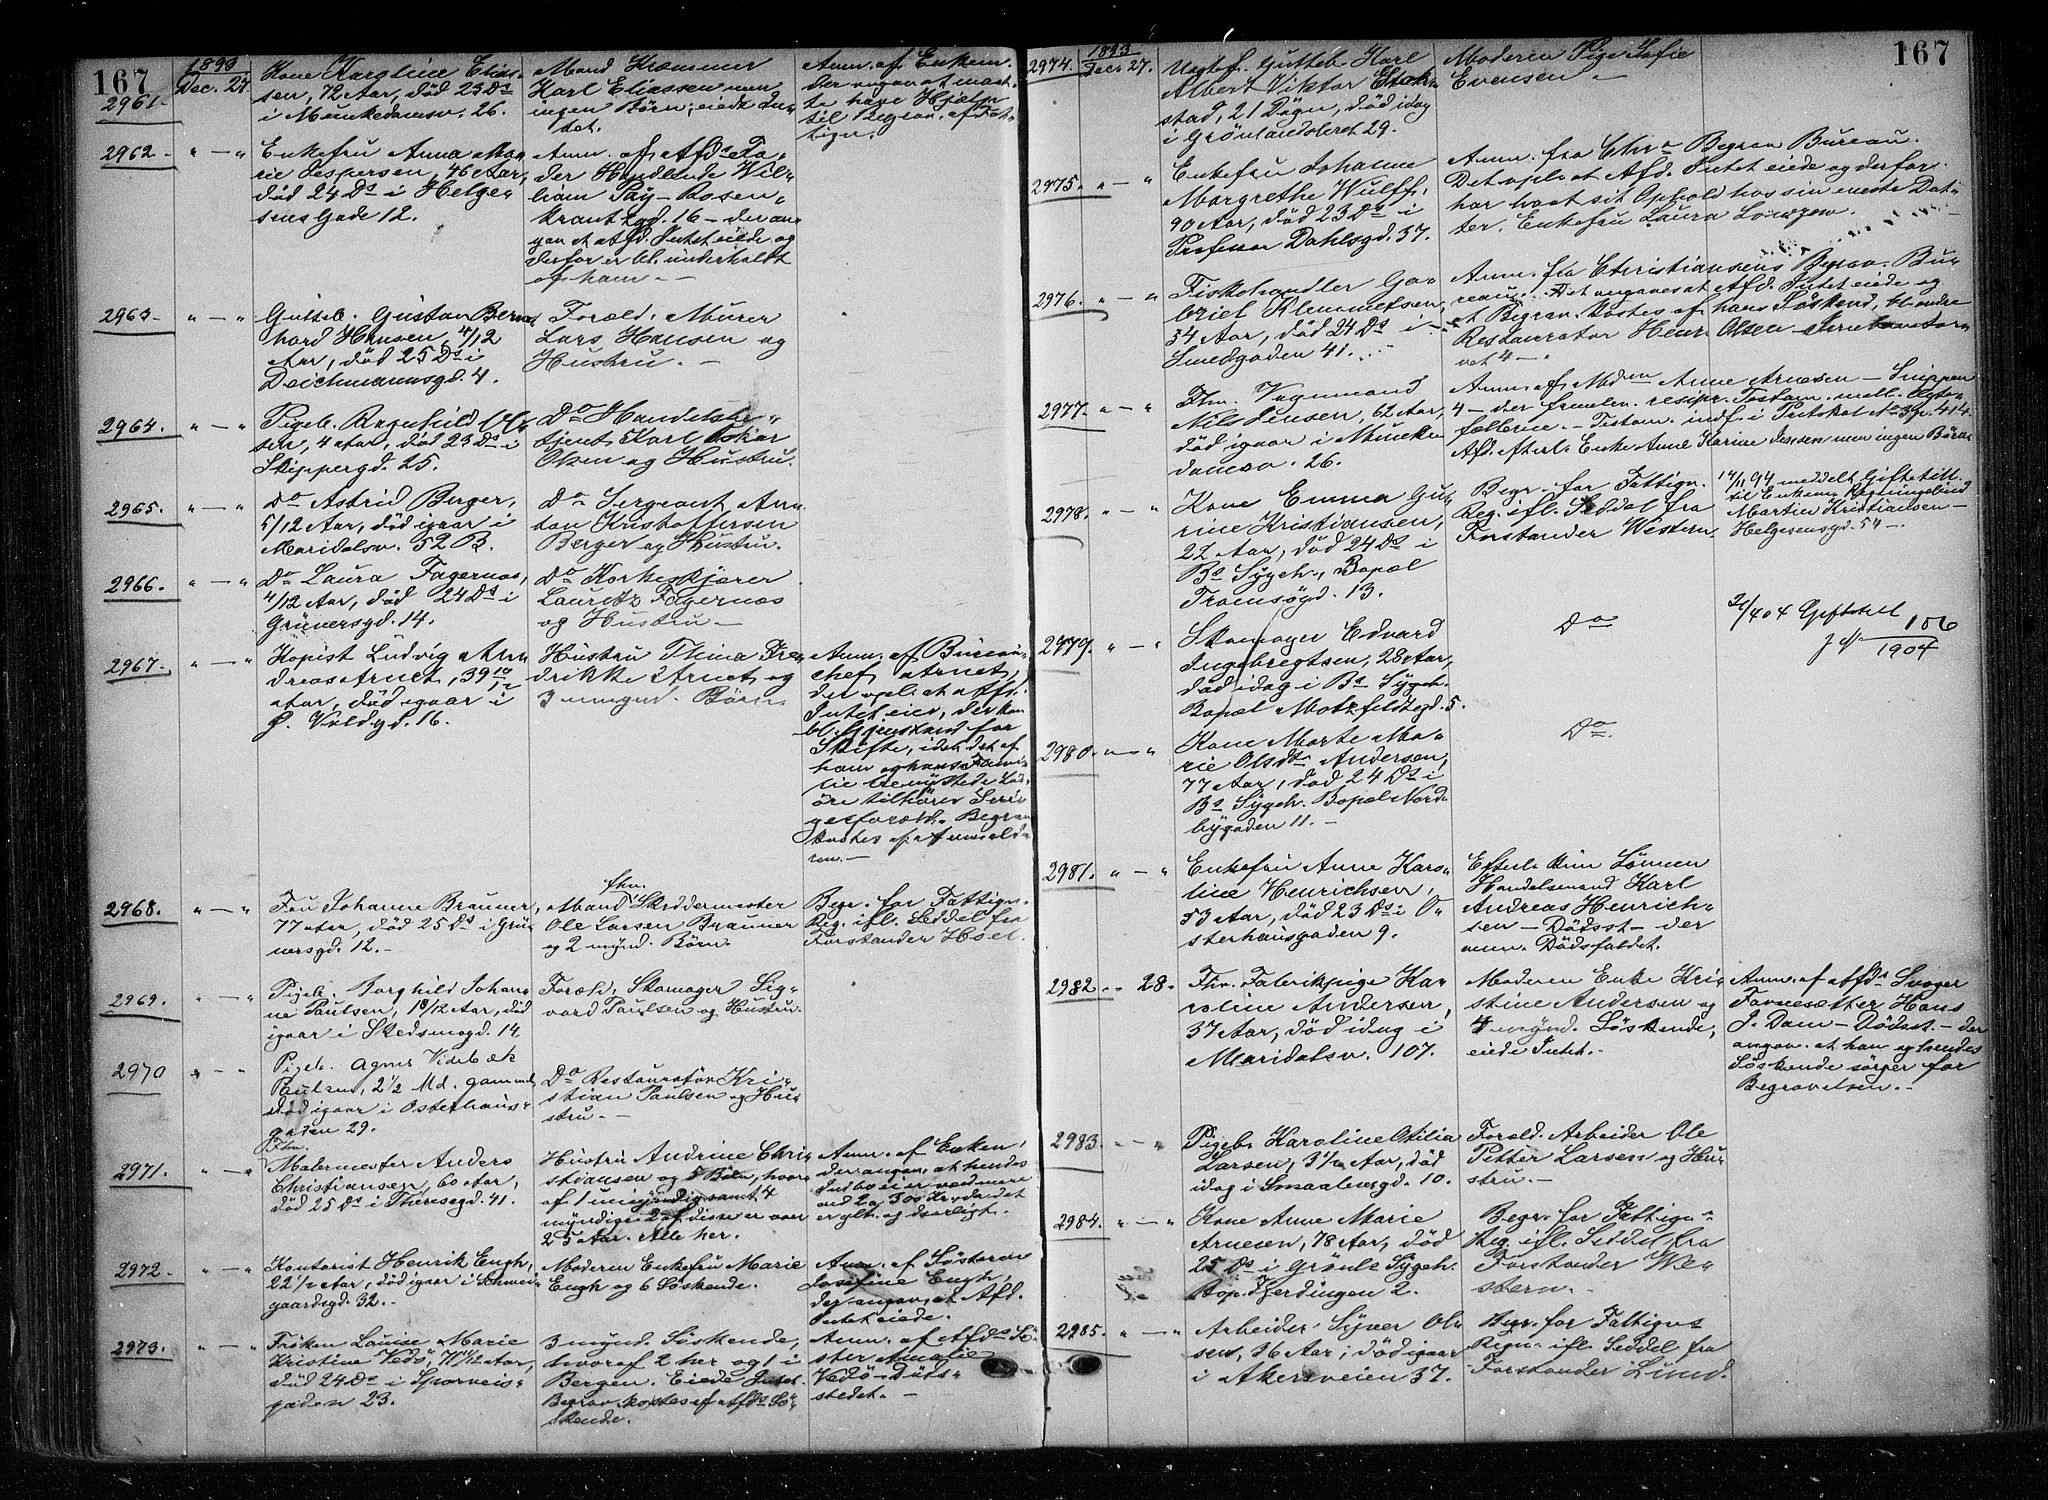 167
1893
2961.
Dec. 27.
Kone Karoline Elias-
sen, 72 Aar, död 23 Ds
i Munkedamsv. 26.
Mand Kræmmer
Karl Eliassen men
ingen Börn; eiede In-
tet.
Anm. af Enkem.
der angav at maat-
te have Hjælp
til Begrav. af Fat-
tigv.
2962 -
" — "
Enkefru Anna Ma-
rie Jespersen, 46 Aar,
död 24 Ds i Helge-
sens Gade 12.
Anm. af Afds Fa-
der Handlende Wil-
liam Pay - Rosen-
krantzgd. 16 - der an-
gav at Afd. Intet eiede og
derfor er bl. underholdt
af ham. -
2963 -
" — "
Gutteb. Gustav Bern-
hard Hansen, 4/12
Aar, död 25 Ds i
Deichmannsgd. 4.
Foræld. Murer
Lars Hansen og
Hustru. -
2964.
" — "
Pigeb. Ragnhild Ol-
sen, 4 Aar, död 23 Ds i
Skippergd. 25.
Do Handelsbe-
tjent Karl Oskar
Olsen og Hustru.
2965.
" — "
Do Astrid Berger,
5/12 Aar, död igaar i
Maridalsv. 52 B.
Do Sergeant An-
ton Kristoffersen
Berger og Hustru.
2966.
" — "
Do Laura Fagernæs,
4/12 Aar, död 24 Ds i
Grünersgd. 14.
Do Korkeskjærer
Lauritz Fagernæs
og Hustru -
2967.
" — "
Kopist Ludvig An-
dreas Arnet, 39 10/12
Aar, död igaar i
Ö. Voldgd. 16.
Hustru Thina Fre-
drikke Arnet og
3 umynd. Börn.
Anm. af Bureau-
chef Arnet,
der opl. at Afd.
Intet eier, der kan
bl. Gjenstand for
Skifte, idet det af
ham og hans Fami-
lie benyttede Lös-
öre tilhörer Svi-
gerforæld. Begrav.
kostes af Anmelde-
ren. -
2968.
" — "
Fru Johanne Brauner,
77 Aar, död 25 Ds i Grü-
nersgd. 12. -
fhv.
Mand Skræddermester
Ole Larsen Brauner
og 2 mynd. Börn.
Begr. for Fattigv.
Rig. ifl. Seddel fra
Forstander Hoel.
2969.
" — "
Pigeb. Borghild Johan-
ne Paulsen, 18/12 Aar, död
igaar i Skedsmogd. 14.
Foræld. Skomager Sig-
vard Paulsen og Hustru.
2970
" — "
Pigeb. Agnes Videbæk
Paulsen, 2 1/2 Md. gammel
död igaar i Osterhaus-
gaden 29.
Do Restauratör Kri-
stian Paulsen og Hu-
stru. -
2971.
" — "
Fhv.
Malermester Anders
Christiansen, 60 Aar,
död 25 Ds i Theresegd. 41.
Hustru Andrine Chri-
stiansen og 5 Börn, hvor-
af 1 umyndig samt 4
myndige. 2 af disse er over
25 Aar. Alle her.
Anm. af Enken,
der angav, at hendes
Indbo ei er værd mere
end 2 a 300 Kr., da det
er glt. og daarligt.
2972.
" — "
Kontorist Henrik Engh,
22 1/2 Aar, död igaar i Schwei-
gaardsgd. 32. -
Moderen Enkefru Marie
Engh og 6 Söskende.
Anm. af Sösteren
Josefine Engh,
der angav, at Afd.
Intet eiede.
2973.
" — "
Fröken Louise Marie
Kristine Vedö, 71 11/12 Aar,
död 24 Ds i Sporveis-
gaden 23.
3 mynd. Söskende,
hvoraf 2 her og 1 i
Bergen. Eiede Intet.
Begrav. kostes af Afds Sö-
skende.
Anm. af Afds Sö-
ster Amalie
Vedö - Döds-
stedet. -
167
1893
2974.
Dec. 27.
Uægtef. Gutteb. Karl
Albert Viktor Stok-
stad, 21 Dögn, död idag
i Grönlandsleret 29.
Moderen Pige Sofie
Evensen -
2975.
" — "
Enkefru Johanne
Margrethe Wulff,
90 Aar, död 23 Ds i
Professor Dahlsgd. 37.
Anm. fra Chra Begrav. Bureau.
Det opl. at Afd. Intet eiede og derfor
har havt sit Ophold hos sin eneste Dat-
ter, Enkefru Laura
2976.
" — "
Fiskehandler Ga-
briel Klemmetsen,
34 Aar, död 24 Ds i
Smedgaden 41.
Anm. fra Christiansens Begrav. Bu-
reau. Det angaves at Afd. Intet eiede og
at Begrav. kostes af hans Söskend, bl. andre
Restauratör Henr. Olsen - Jernbanetor-
vet 4 -
2977.
" — "
Fhv. Vognmand
Nils Jensen, 62 Aar,
död igaar i Munke-
damsv. 26.
Anm. af Madm Anne Arnesen - Snippen
4 - der fremlev. resipr. Testam. mell. Ægte-
fællerne. - Testam. indf. i Protokol No 3 p. 414.
Afd. efterl. Enke Anne Karine Jensen men ingen Börn.
2978.
" — "
Kone Emma Gu-
rine Kristiansen,
22 Aar, död 24 Ds i
Bs Sygeh., Bopæl
Tromsögd. 13.
Begr. for Fattigv.
Reg. ifl. Seddel fra
Forstander Western.
14/11 94 meddelt Giftetill.
til Enkem.
Martin Kristiansen -
Helgesensgd. 54 -.
2979.
" — "
Skomager Edvard
Ingebregtsen, 28 Aar,
död idag i Bs Sygeh.
Bopæl Motzfeldtsgd. 5.
Do
21/4 04 Giftetill
106
1904
2980.
" — "
Kone Marte Ma-
rie Olsdtr Andersen,
77 Aar, död 24 Ds i
Bs Sygeh. Bopæl Nord-
bygaden 11. -
Do
2981.
" — "
Enkefru Anne Karo-
line Henrichsen,
53 Aar, död 23 Ds i O-
sterhausgaden 9.
Efterl. kun Sönnen
Handelsmand Karl
Andreas Henrich-
sen - Dödsst. - der
anm. Dödsfaldet.
2982.
" 28.
Fhv. Fabrikpige Ka-
roline Andersen,
37 Aar, död idag i
Maridalsv. 107.
Moderen Enke Kri-
stine Andersen og
4 mynd. Söskende,
eiede Intet. -
Anm. af Afds Svoger
Farvesætter Hans
J. Dam - Dödsst. - der
angav. at han og hendes
Söskende sörger for
Begravelsen. -
2983.
" — "
Pigeb. Karoline Otilia
Larsen, 3 1/2 Aar, död
idag i Smaalensgd. 10.
Foræld. Arbeider Ole
Petter Larsen og Hu-
stru. -
2984.
" — "
Kone Anne Marie
Arnesen, 78 Aar, död
25 Ds i Grönl. Sygeh.
Bop. Fjerdingen 2.
Begr. for Fattigv.s
Reg. ifl. Seddel fra
Forstander We-
stern. -
2985.
" — "
Arbeider Syver Ol-
sen, 36 Aar, död igaar
i Akersveien 37.
Begr. for Fattigvs
Regn. ifl. Seddel fra
Forstander Lund.